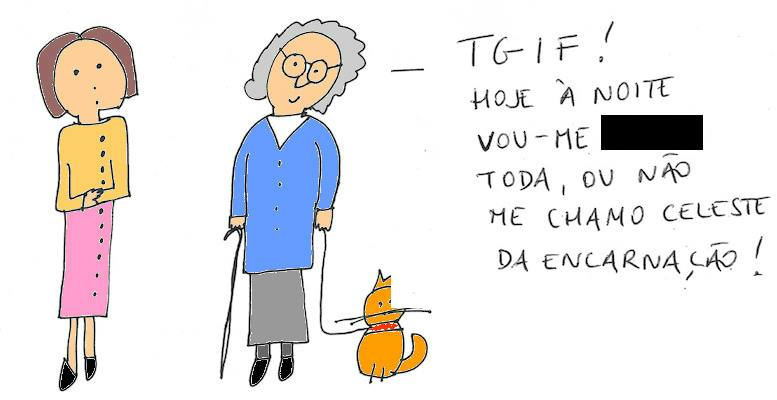 — TGIF!
HOJE À NOITE
VOU-ME
TODA, OU NÃO
ME CHAMO CELESTE
DA ENCARNAÇÃO!